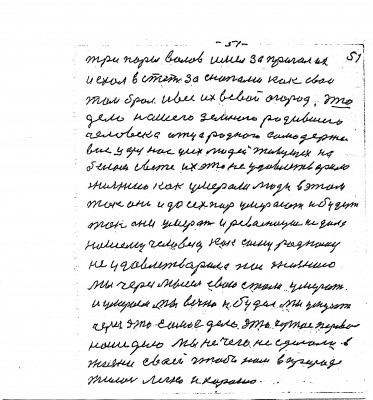 - 51 -
51
три пары валов имел запригал их
и ехал в степь за снопами как свои
там брал и вез их в свой огород. Это
дело нашего земного родившего
человека отца родного самодержа
вие царя нас всех людей живущих на
белом свете их это не удовлетварило
жизнию как умерали люди в этом
так они и до сех пор умерают и будут
так они умерат и революция не дала
нашему человеку как сыну родному
не удовлетварила их жизнию
мы через мысл свою стали умерат.
и умераем мы вечно и будем мы умерать
через это самое дело, это чужое первое
наше дело мы нечего не сделали в
жизни своей чтобы нам в природе
жилос легко и харашо.